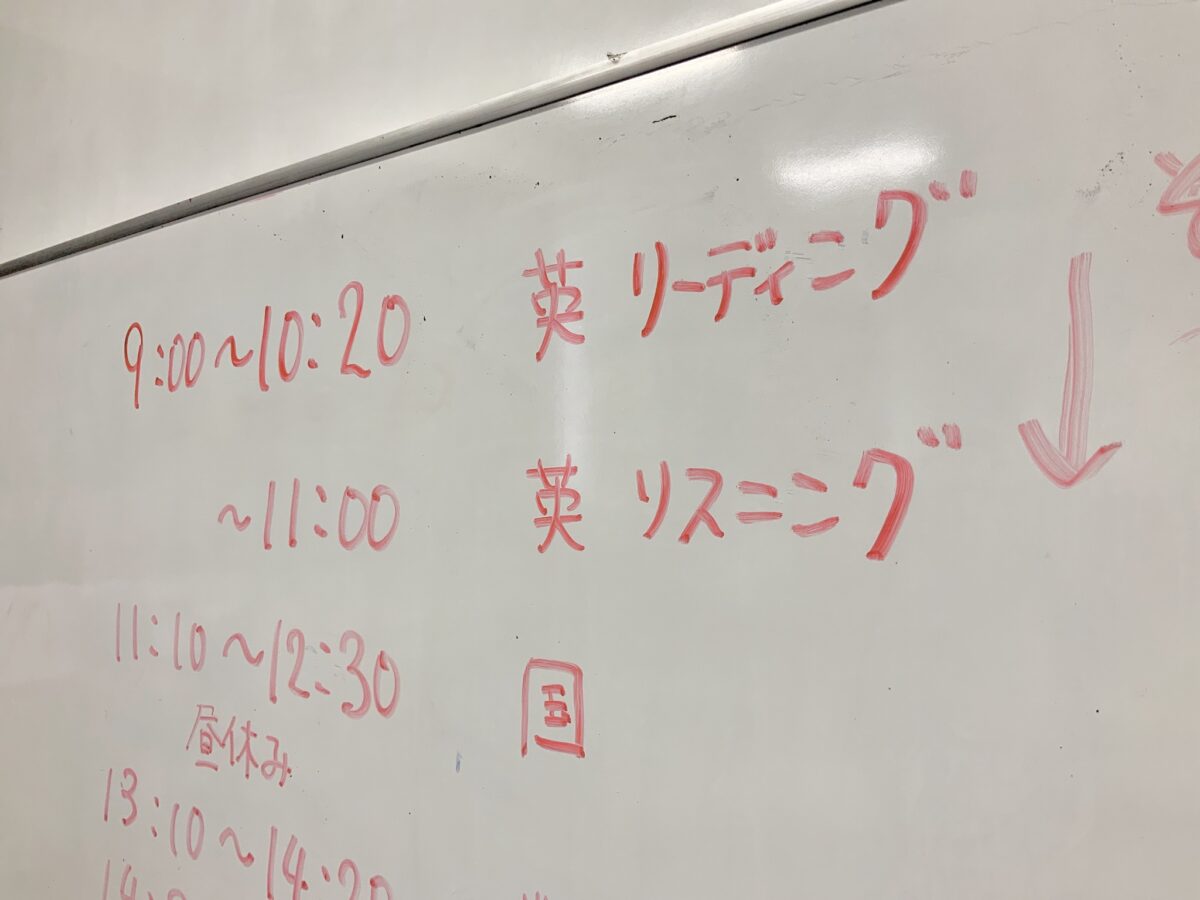 9:00～10:20 英 リーディング
～11:00 英 リスニング
11:10～12:30 国
昼休み
13:10～14:20